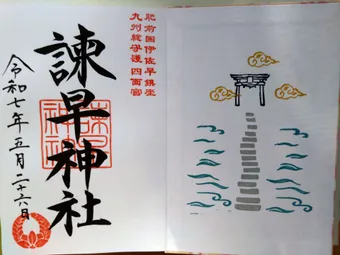 肥前国伊佐早鎮座
九州総守護 四面宮
諫早神社
令和七年五月二十六日